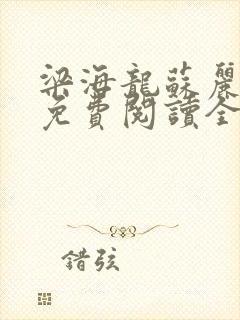 梁海龍蘇麗
免費閱讀全
錯弦